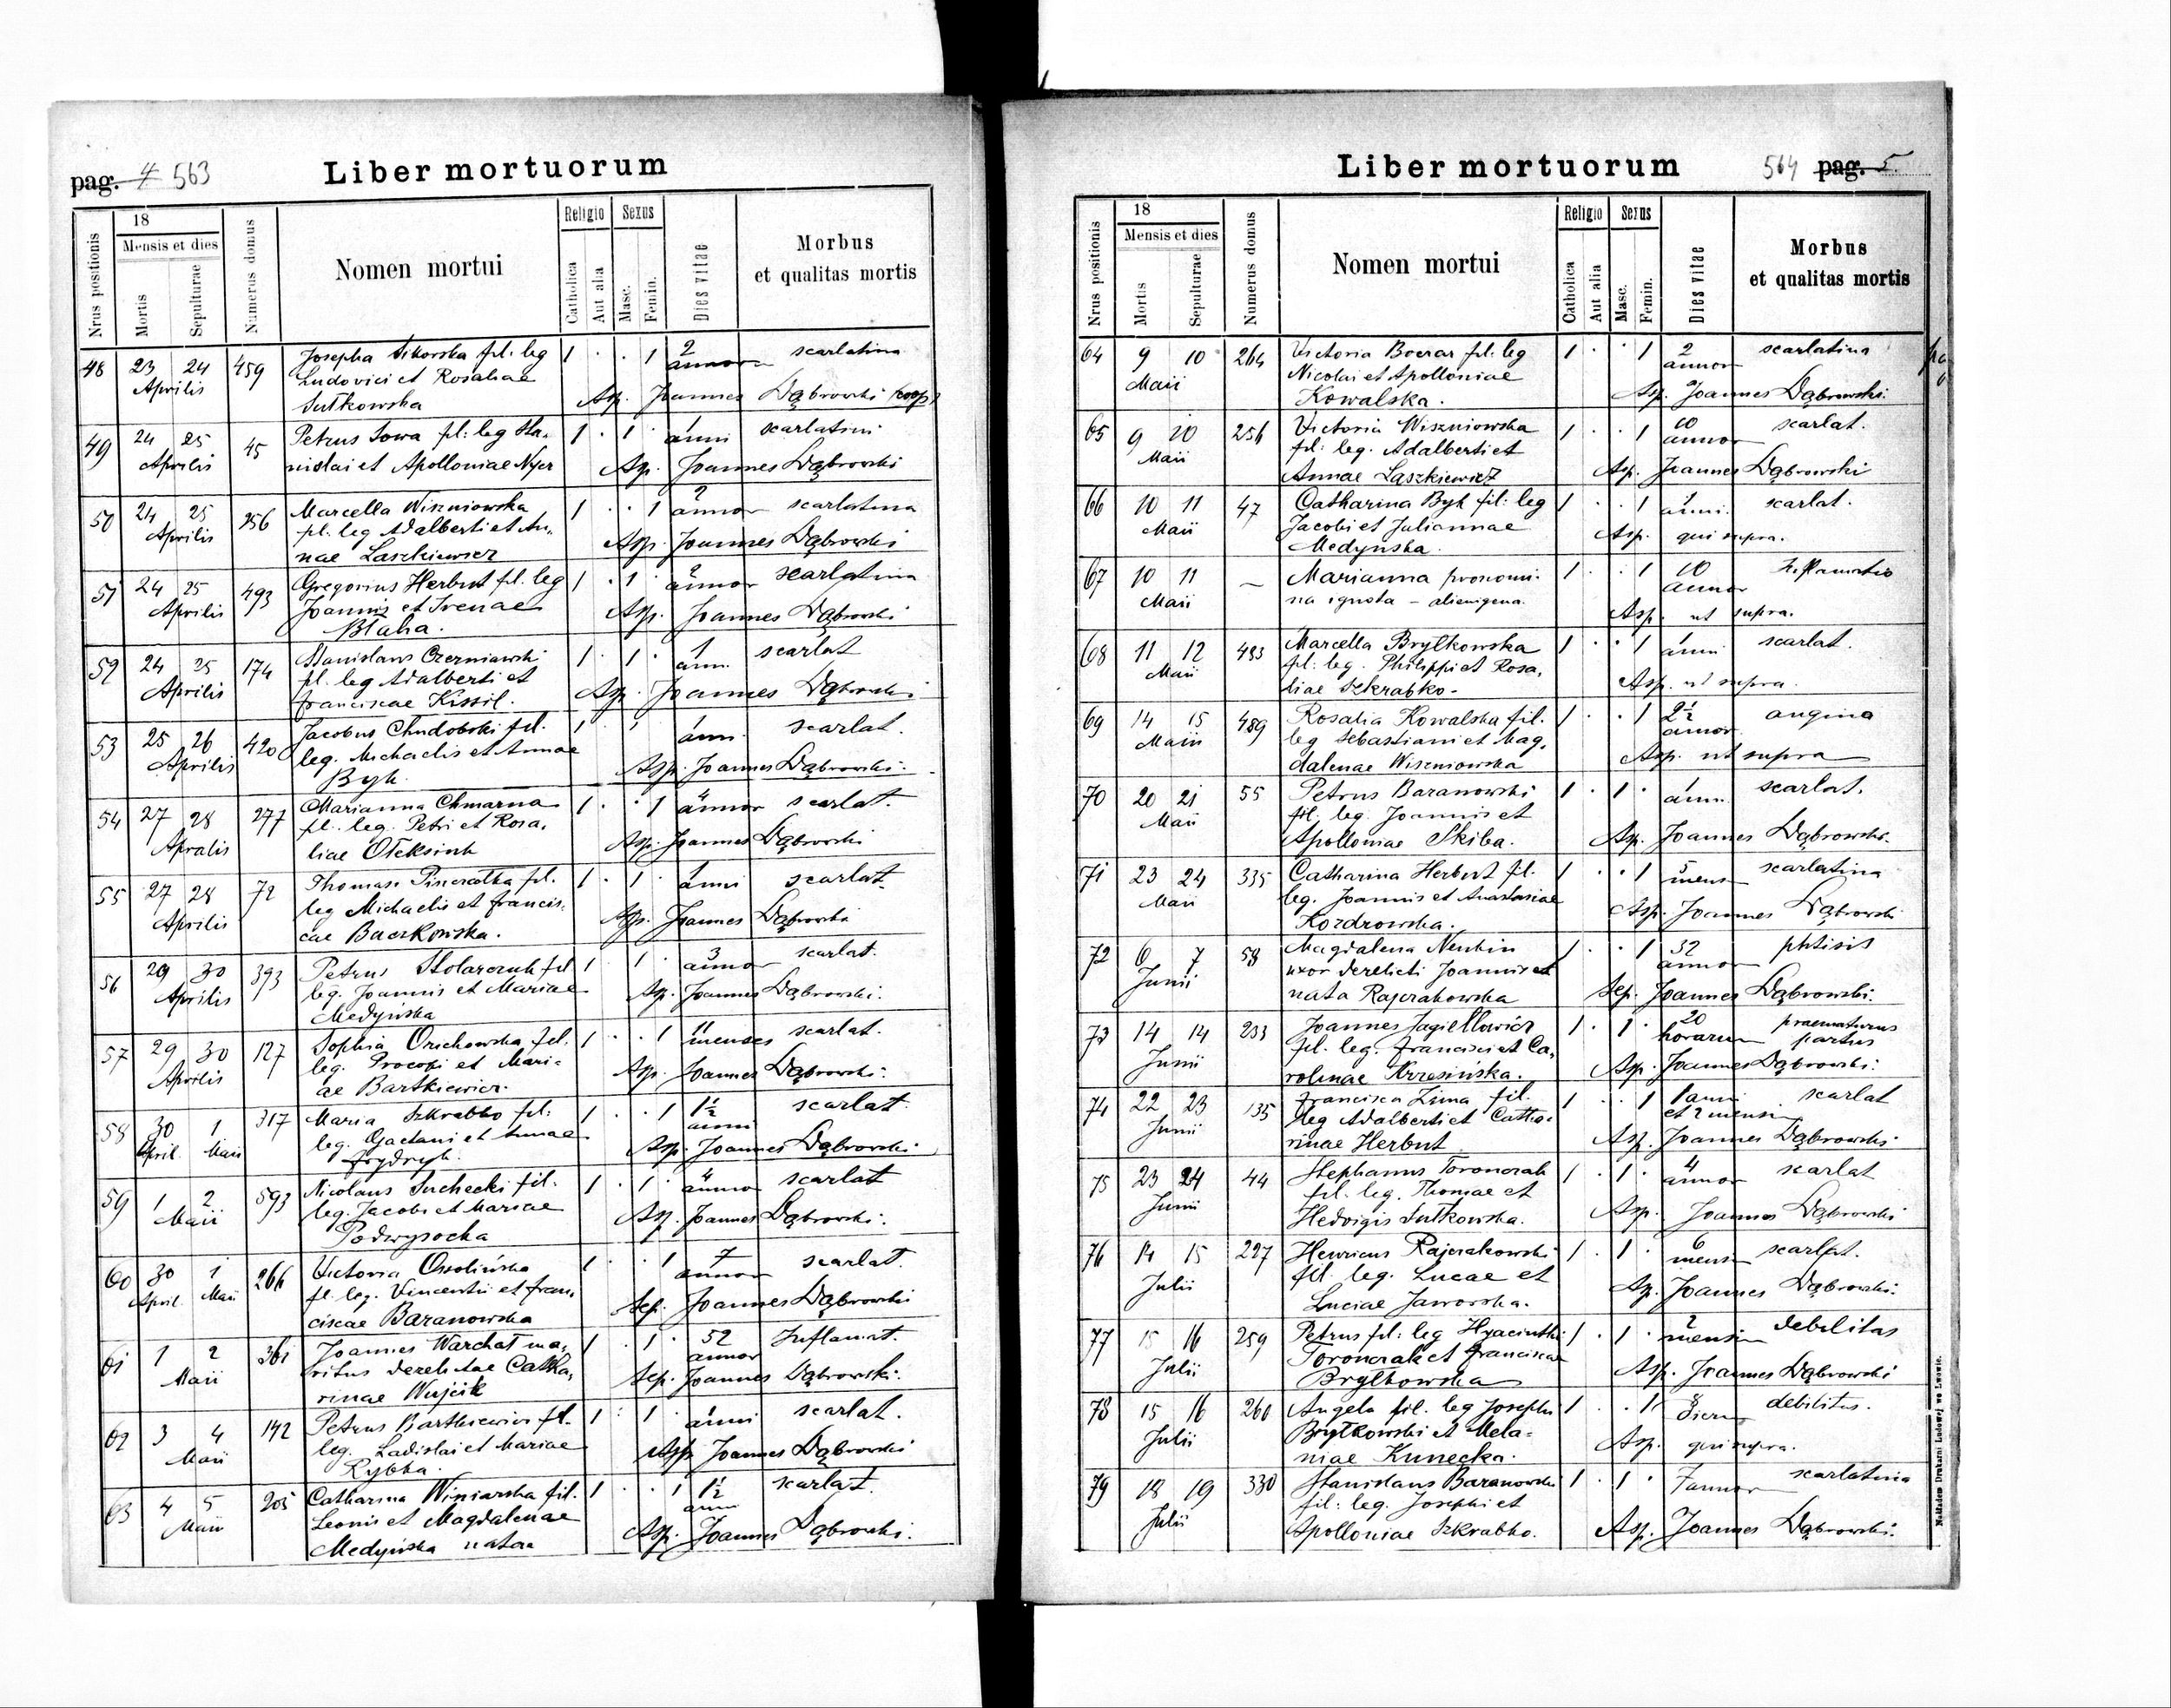 pag. 4 563
Liber mortuorum
Nrus positionis
18
Mensis et dies
Mortis
Sepulturae
Numerus domus
Nomen mortui
Religio
Catholica
Aut alia
Sexus
Masc.
Femin.
Dies vitae
Morbus
et qualitas mortis
48 23 24 459 Josepha Sikorska fil: leg 1 . . 1 2 scarlatina
Aprilis Ludovici et Rosaliae annor
Sutkowska Asp. Joannes Dąbrowski coop.
49 24 25 45 Petrus Sowa fil: leg Sta- 1 . 1 . 1 anni scarlatini
Aprilis nislai et Apolloniae Nyer Asp. Joannes Dąbrowski
50 24 25 256 Marcella Wiszniowska 1 . . 1 2 annor scarlatina
Aprilis fil. leg Adalberti et An-
nae Laszkiewicz Asp. Joannes Dąbrowski
51 24 25 493 Gregorius Herbut fil. leg 1 . 1 . 2 annor scarlatina
Aprilis Joannis et Irenae Asp. Joannes Dąbrowski
Błaha.
52 24 25 174 Stanislaus Czerniawski 1 . 1 . 1 ann. scarlat
Aprilis fil. leg Adalberti et
Franciscae Kissil. Asp. Joannes Dąbrowski
53 25 26 420 Jacobus Chudobski fil. 1 . 1 ann. scarlat.
Aprilis leg. Michaelis et Annae
Byk Asp. Joannes Dąbrowski.
54 27 28 277 Marianna Chmarna 1 . . 1 4 annor scarlat.
Apralis fil. leg. Petri et Rosa-
liae Ołeksiuk Asp. Joannes Dąbrowski
55 27 28 72 Thomas fil. 1 . 1 . 1 anni scarlat.
Aprilis leg Michaelis et Francis-
cae Baczkowska. Asp. Joannes Dąbrowski
56 29 30 393 Petrus Stolarczuk fil 1 . 1 . 3 annor scarlat.
Aprilis leg. Joannis et Mariae
Medyńska Asp. Joannes Dąbrowski.
57 29 30 127 Sophia Orichowska fil. 1 . . 1 11 menses scarlat.
Aprilis leg. Procopi et Mari-
ae Bartkiewicz. Asp. Joannes Dąbrowski.
58 30 1 317 Maria Szkrabko fil: 1 . . 1 1½ anni scarlat.
April. Maii leg. Gaetani et Annae
Frydryk. Asp. Joannes Dąbrowski
59 1 2 593 Nicolaus Suchecki fil. 1 . 1 . 4 annor scarlat
Maii leg. Jacobi et Mariae
Podwysocka Asp. Joannes Dąbrowski.
60 30 1 266 Victoria Ossolińska 1 . . 1 7 annor scarlat.
April. Maii fil. leg. Vincentii et Fran-
ciscae Baranowska Sep. Joannes Dąbrowski
61 1 2 361 Joannes Warchał ma- 1 . 1 . 52 annor Inflamat.
Maii ritus derelictae Catha-
rinae Wujcik Sep. Joannes Dąbrowski.
62 3 4 142 Petrus Bartkiewicz fil. 1 . 1 . 1 anni scarlat.
Maii leg. Ladislai et Mariae
Rybka. Asp Joannes Dąbrowski
63 4 5 205 Catharina Winiarska fil. 1 . . 1 1½ anni scarlat.
Maii Leonis et Magdalenae
Medyńska nata Asp. Joannes Dąbrowski.
Liber mortuorum
564 pag. 5.
Nrus positionis
18
Mensis et dies
Mortis
Sepulturae
Numerus domus
Nomen mortui
Religio
Catholica
Aut alia
Sexus
Masc.
Femin.
Dies vitae
Morbus
et qualitas mortis
64 9 10 264 Victoria fil: leg 1 . . 1 2 annor scarlatina
Maii Nicolai et Apolloniae
Kowalska. Asp. Joannes Dąbrowski.
65 9 10 256 Victoria Wiszniowska 1 . . 1 10 annor scarlat.
Maii fil: leg. Adalberti et
Annae Laszkiewicz Asp. Joannes Dąbrowski
66 10 11 47 Catharina Byk fil: leg 1 . . 1 1 anni. scarlat.
Maii Jacobi et Juliannae Asp. qui supra.
Medyńska.
67 10 11 — Marianna pronomi- 1 . . 1 10 annor Inflamatio
Maii na ignota – alienigena. Asp. ut supra.
68 11 12 493 Marcella Brytkowska 1 . . 1 1 anni scarlat.
Maii fil: leg. Philippi et Rosa-
liae Szkrabko- Asp. ut supra.
69 14 15 489 Rosalia Kowalska fil. 1 . . 1 2½ annor angina
Maii leg Sebastiani et Mag-
dalenae Wiszniowska Asp. ut supra
70 20 21 55 Petrus Baranowski 1 . 1 . 1 ann. scarlat.
Maii fil. leg. Joannis et
Apolloniae Skiba. Asp. Joannes Dąbrowski.
71 23 24 335 Catharina Herbut fil. 1 . . 1 5 mens scarlatina
Maii leg. Joannis et Anastasiae
Kozdrowska. Asp. Joannes Dąbrowski
72 6 7 58 Magdalena 1 . . 1 32 annor phtisis
Junii uxor derelicti Joannis et
nata Rajczakowska Sep. Joannes Dąbrowski.
73 14 14 233 Joannes Jagiełłowicz 1 . 1 . 20 horarum praematurus partus
Junii fil. leg. Francisci et Ca-
rolinae Krzesińska. Asp. Joannes Dąbrowski.
74 22 23 135 Francisca Zima fil. 1 . . 1 1 anni et 2 mensium scarlat
Junii leg Adalberti et Catha-
rinae Herbut Asp. Joannes Dąbrowski
75 23 24 44 Stephanus Toronczak 1 . 1 . 4 annor scarlat
Junii fil. leg. Thomae et
Hedvigis Sutkowska. Asp. Joannes Dąbrowski
76 14 15 227 Henricus Rajczakowski 1 . 1 . 6 mensi scarlat.
Julii fil. leg. Lucae et
Luciae Jaworska. Asp. Joannes Dąbrowski.
77 15 16 259 Petrus fil: leg Hyacinthi 1 . 1 . 2 mensi debilitas
Julii Toronczak et Franciscae
Brytkowska Asp. Joannes Dąbrowski
78 15 16 260 Angela fil. leg Josephi 1 . . 1 8 dierum debilitas.
Julii Brytkowski et Mela-
niae Kunecka. Asp. qui supra.
79 18 19 330 Stanislaus Baranowski 1 . 1 . 7 annor scarlatina
Julii fil: leg. Josephi et
Apolloniae Szkrabko. Asp. Joannes Dąbrowski.
Nakładem Drukarni Ludowej we Lwowie.